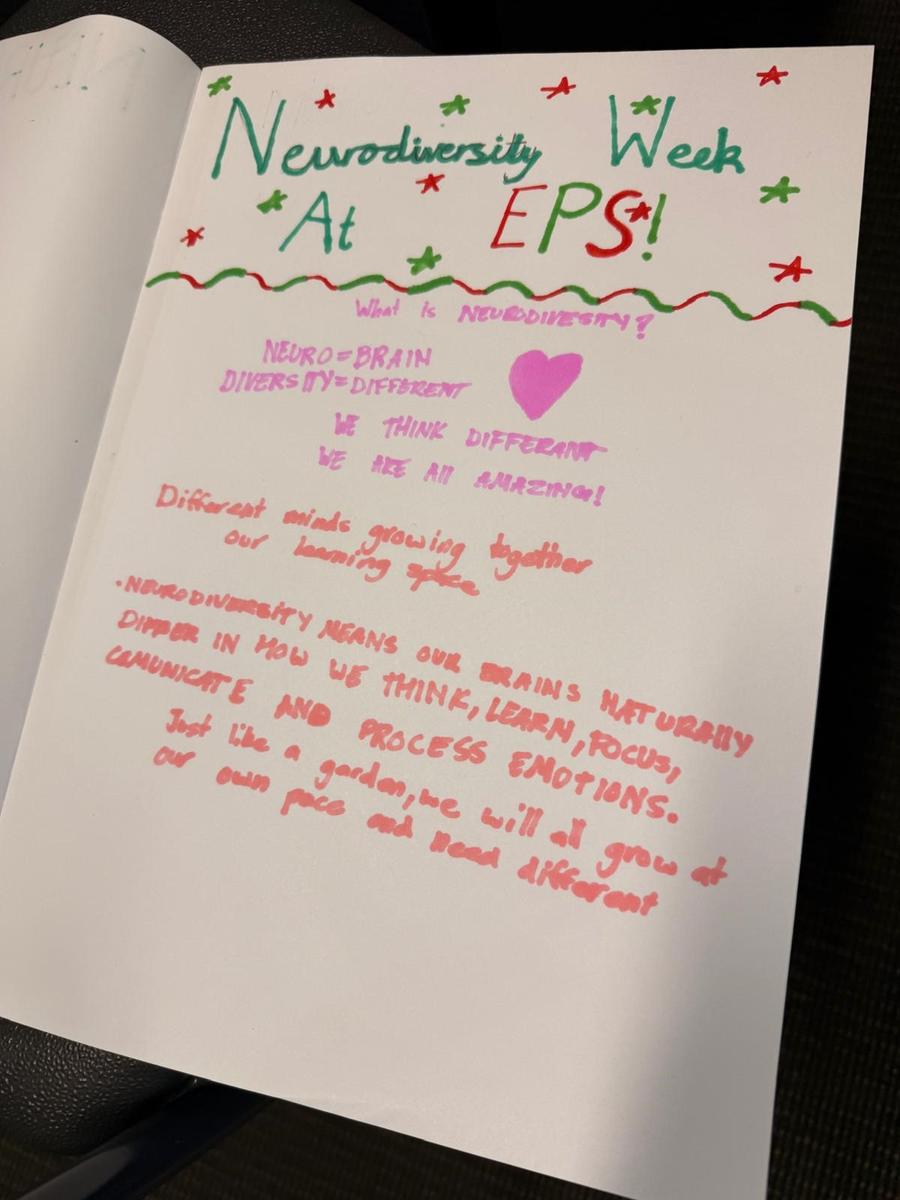 Neurodiversity Week
At EPS!
What is NEURODIVESITY?
NEURO=BRAIN
DIVERSITY=DIFFERENT
WE THINK DIFFERANT
WE ARE All AMAZING!
Different minds growing together
our learning space
·NEURODIVERSITY MEANS OUR BRAINS NATURAlly
DIFFER IN HOW WE THINK, LEARN, FOCUS,
COMUNICATE AND PROCESS EMOTIONS.
Just like a garden, we will all grow at
our own pace and need different